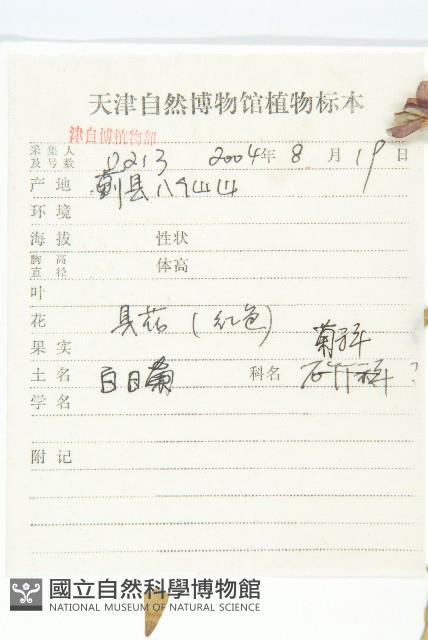 天津自然博物馆植物标本
津自博植物部
采集人及号数 0213 2004年 8 月 19 日
产地 蓟县八仙山
环境
海拔 性状
胸高直径 体高
叶
花 具花(红色)
果实 菊科
土名 百日菊 科名 石竹科?
学名
附记
國立自然科學博物館
NATIONAL MUSEUM OF NATURAL SCIENCE